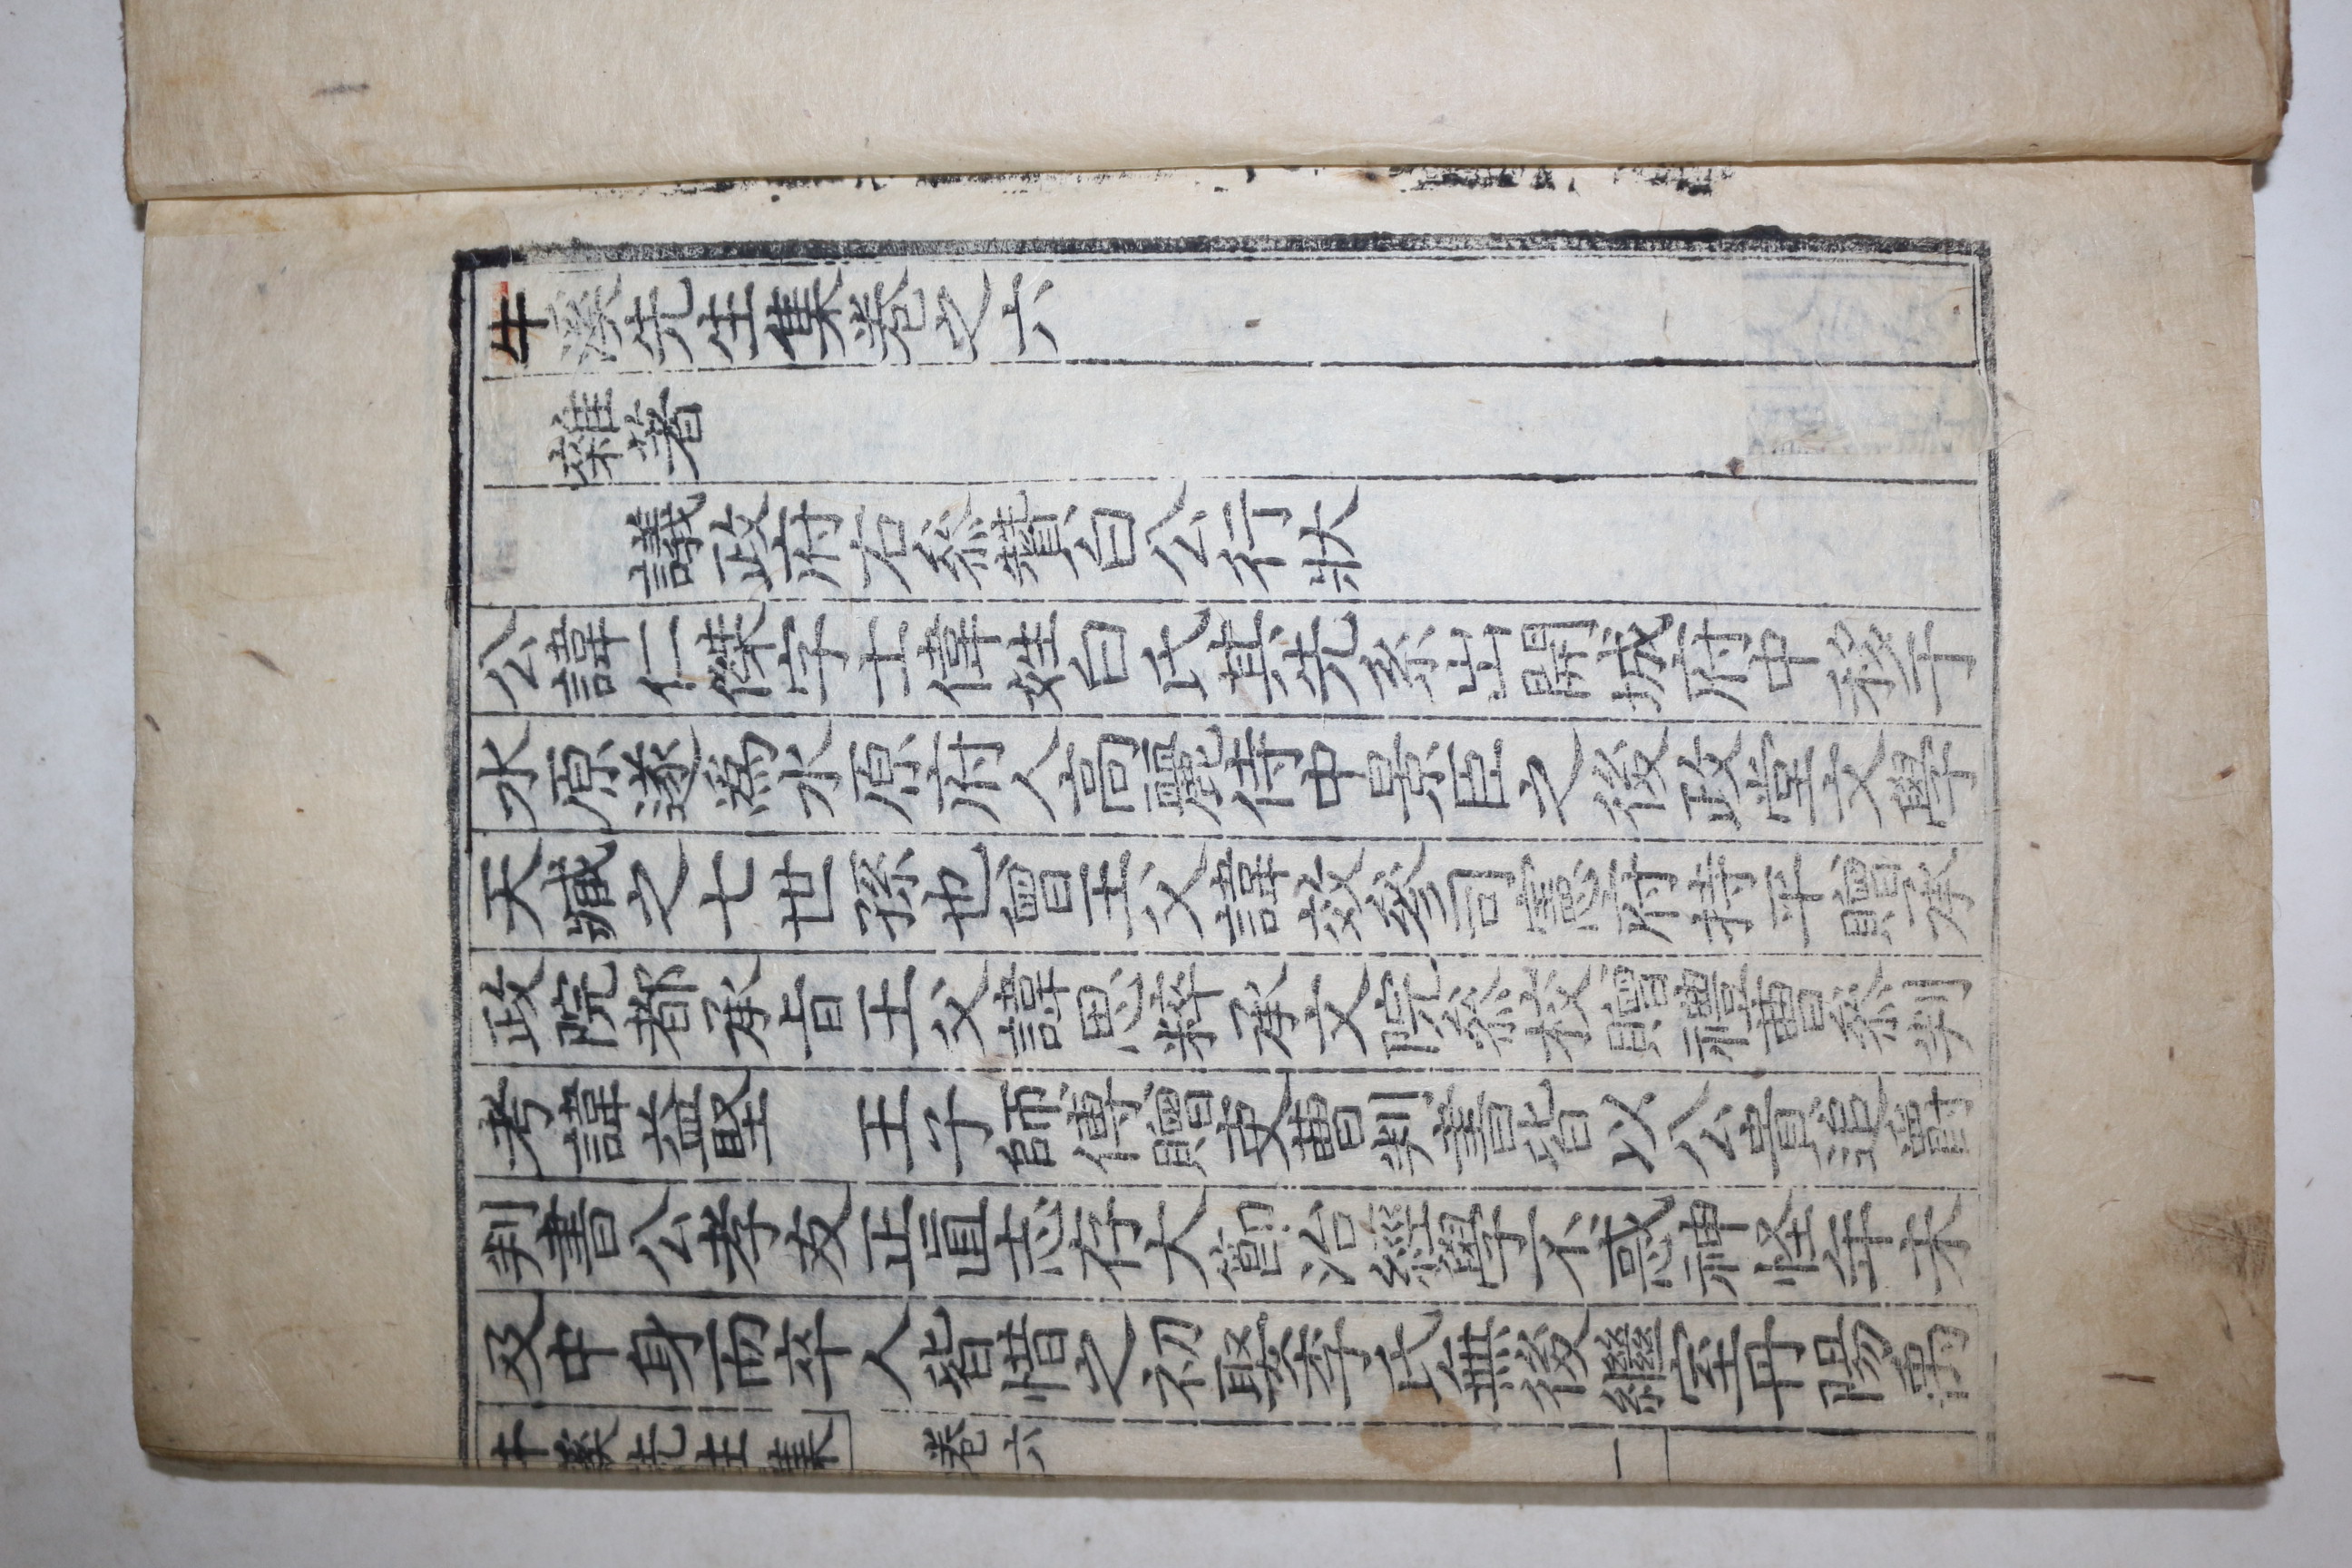 牛溪先生集卷之六
雜著
議政府右叅贊白公行狀
公諱仁傑字士偉姓白氏其先系出開城府中移于
水原遂爲水原府人高麗侍中景臣之後政堂文學
天臧之七世孫也曾王父諱效參司憲府持平贈承
政院都承旨王父諱思粹承文院叅校贈禮曹叅判
考諱益堅 王子師傅贈吏曹判書皆以公貴追爵
判書公孝友正直志存大節治經學不惑神怪年未
及中身而卒人皆惜之初娶李氏無後繼室丹陽禹
牛溪先生集 卷六 一